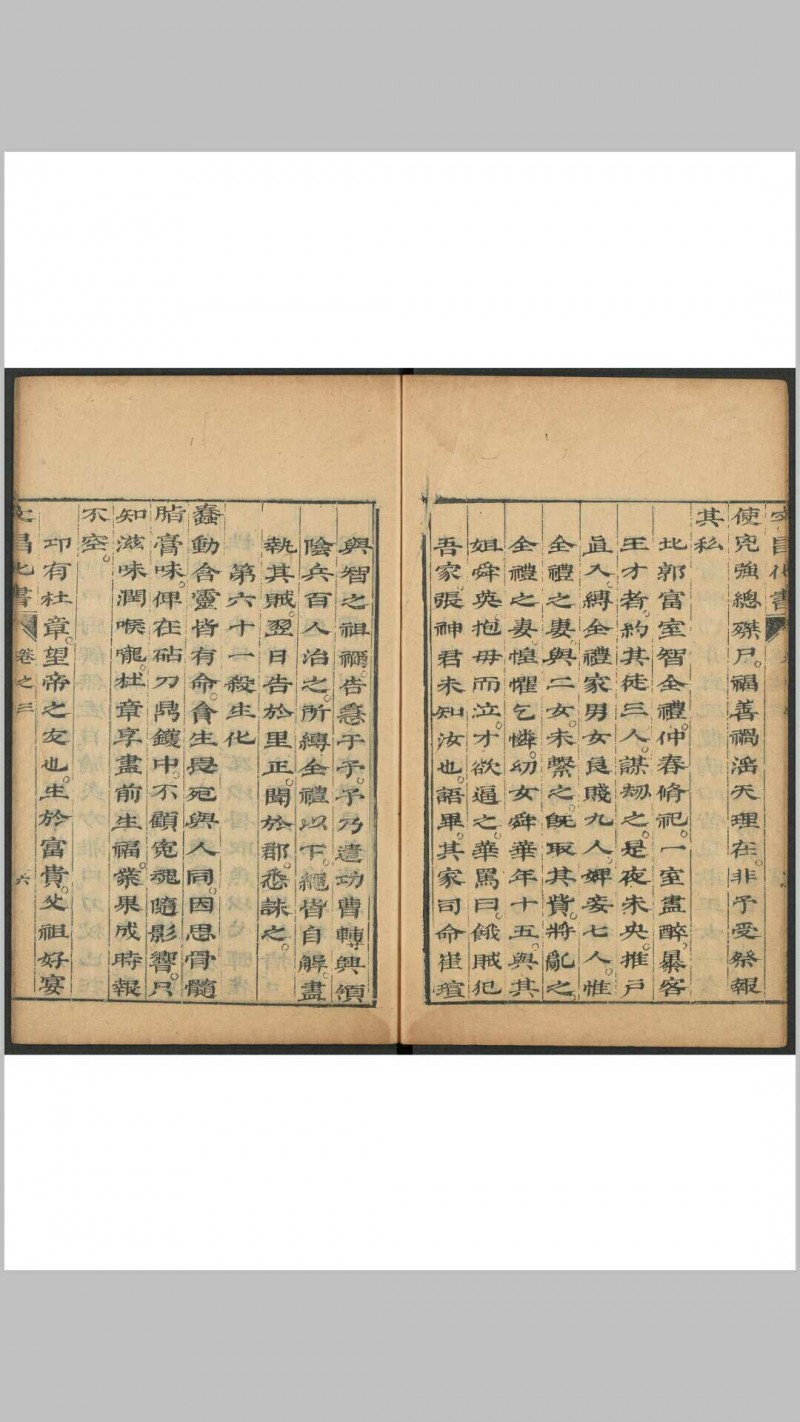 文昌化書
使兇強總磔尸。福善禍淫天理在。非予受祭報
其私
北郭富室智全禮。仲春脩祀。一室盡醉。暴客
王才者。約其徒三人。謀刼之。是夜未央。推戶
直入。縛全禮家男女良賤九人。婢妾七人。惟
全禮之妻。與二女。未繫之。旣取其貲。將亂之。
全禮之妻。惶懼乞憐。幼女舜華年十五。與其
姐舜英抱母而泣。才欲逼之。華罵曰。餓賊犯
吾家。張神君未知汝也。語畢。其家司命崔瑄
與智之祖禰。告急于予。予乃遣功曹轉興。領
陰兵百人治之。所縛全禮以下。繩皆自解。盡
執其賊。翌日告於里正。聞於郡。悉誅之。
第六十一殺生化
蠢動含靈皆有命。貪生畏死與人同。因思骨髓
脂膏味。俾在砧刀鼎鑊中。不顧寃魂隨影響。只
知滋味潤喉嚨。杜章享盡前生福。業果成時報
不空。
邛有杜章。望帝之友也。生於富貴。父祖好宴
文昌化書 卷之三 六